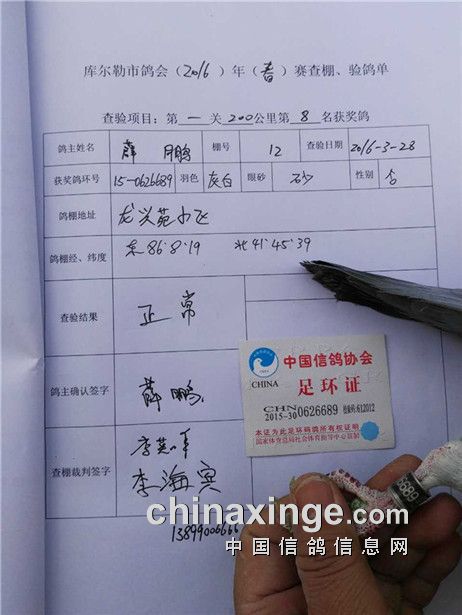 库尔勒市鸽会(2016)年(春)赛查棚、验鸽单
查验项目：第一关200公里第8名获奖鸽
鸽主姓名 薛鹏 棚号 12 查验日期 2016-3-28
获奖鸽环号 15-0626689 羽色 灰白 眼砂 砂 性别
鸽棚地址 龙兴苑小飞
鸽棚经、纬度 东86:8:19 北41:45:39
查验结果 正常
鸽主确认签字 薛鹏
查棚裁判签字 李海宾
13899006666
中国信鸽协会
CHINA
足环证
CHN
2015-30 0626689
本证为此足环码鸽所有权证明
国家体育总局社会体育指导中心监制
6689
chinaxinge.com
中国信鸽信息网